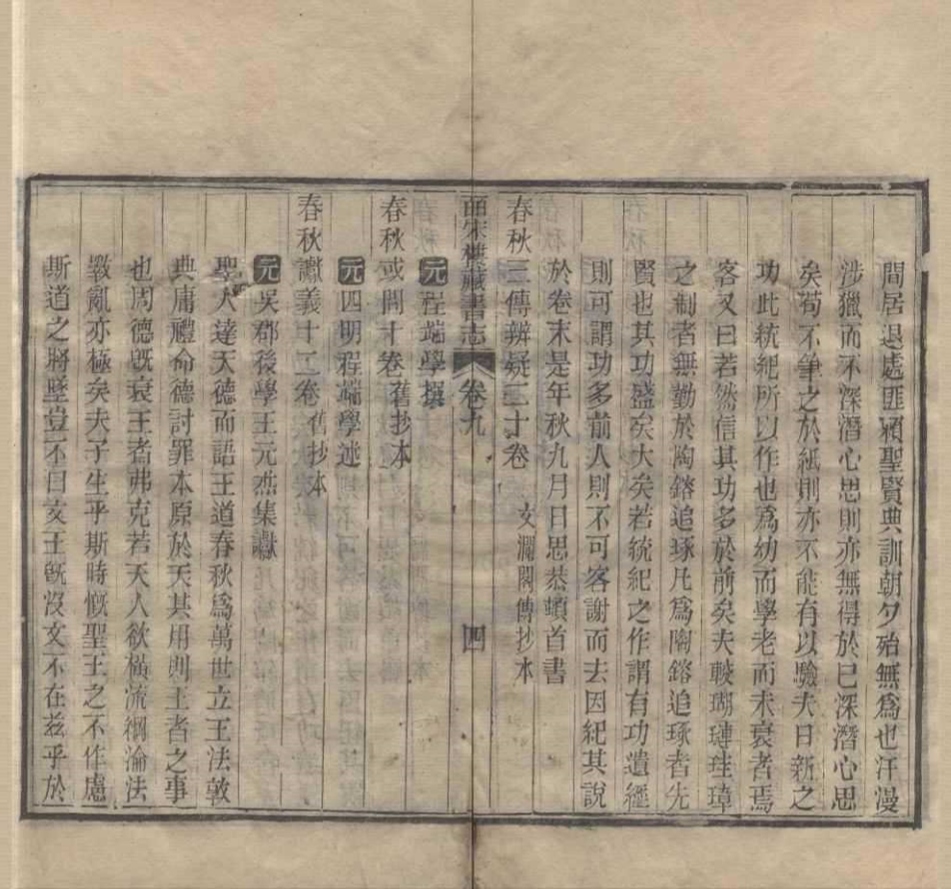 間居退處匪潁聖賢典訓朝夕殆無爲也汗漫
涉獵而不深潛心思則亦無得於巳深潛心思
矣苟不筆之於紙則亦不能有以驗夫日新之
功此統紀所以作也爲幼而學老而未衰者焉
客又曰若然信其功多於前矣夫較瑚璉珪璋
之制者無勤於陶鎔追琢凡爲陶鎔追琢者先
賢也其功盛矣大矣若統紀之作謂有功遺經
則可謂功多前人則不可客謝而去因紀其說
於卷末是年秋九月日思恭頓首書
春秋三傳辨疑二十卷 文瀾閣傳抄本
皕宋樓藏書志 卷九 四
元程端學撰
春秋或問十卷 舊抄本
元四明程端學述
春秋讞義十二卷 舊抄本
元吳郡後學王元杰集讞
聖人達天德而語王道春秋爲萬世立王法敦
典庸禮命德討罪本原於天其用則王者之事
也周德旣衰王者弗克若天人欲橫流綱淪法
斁亂亦極矣夫子生乎斯時慨聖王之不作慮
斯道之將墜豈不曰文王旣沒文不在茲乎於